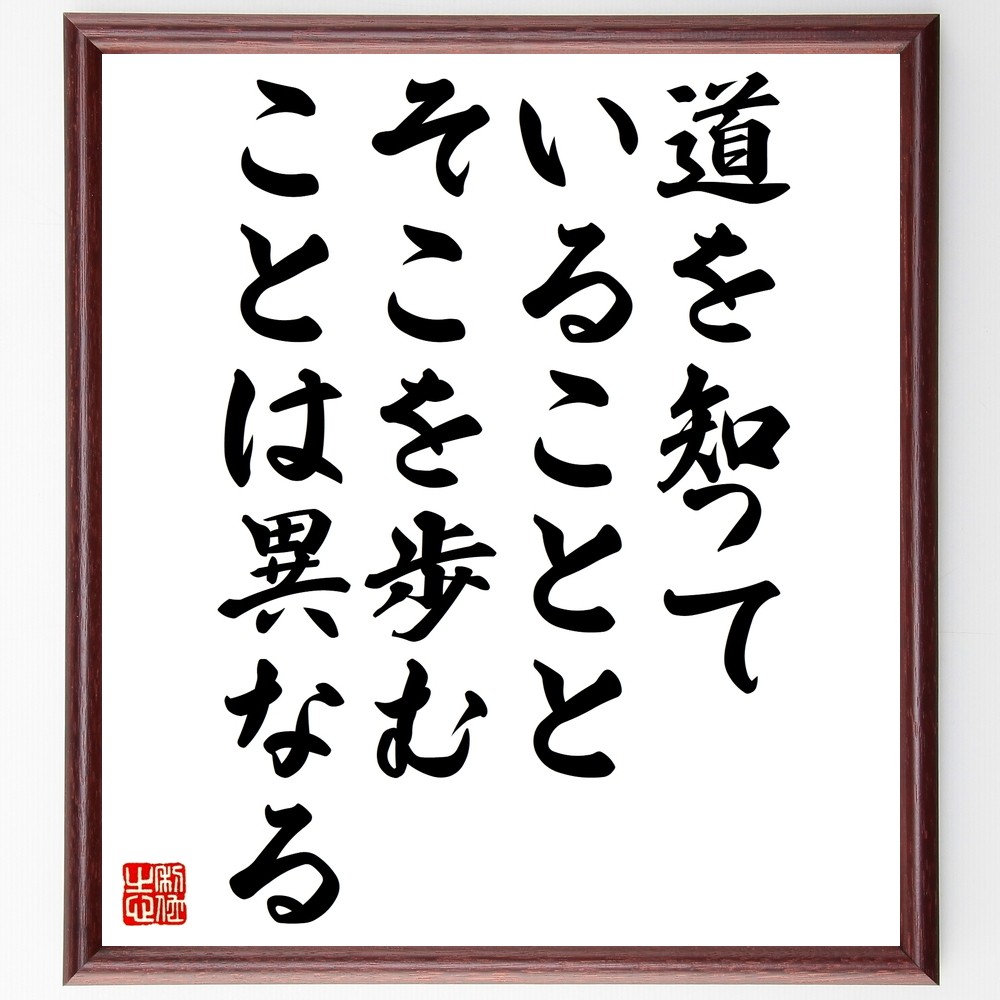 道を知って
いることと
そこを歩む
ことは異なる